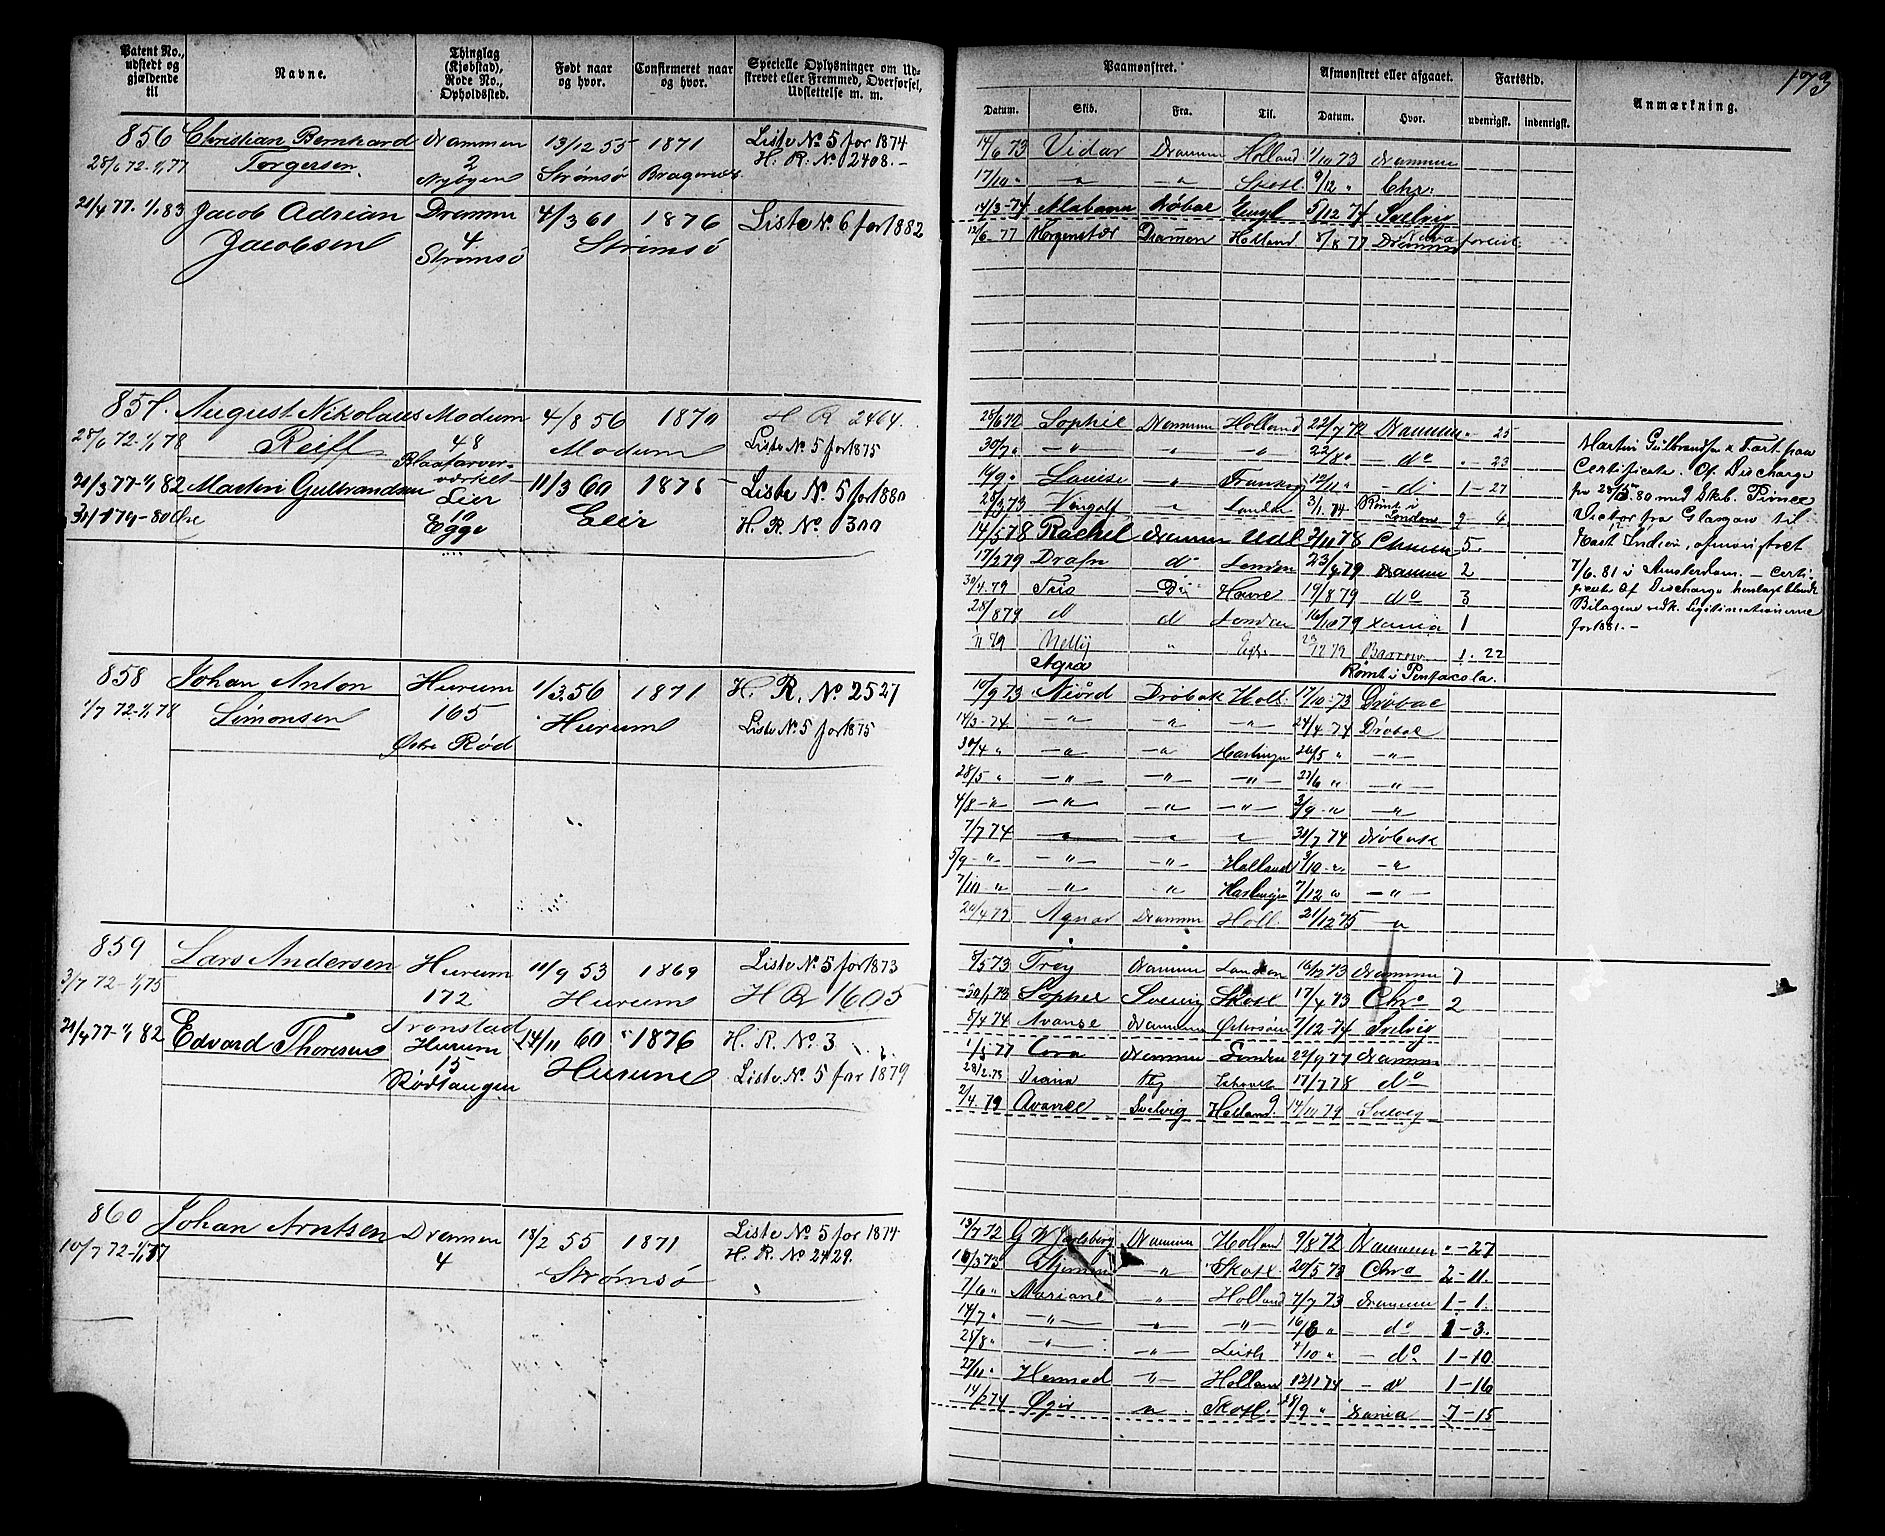 Patent No. udstedt og gjældende til | Navne. | Thinglag (Kjøbstad), Rode No., Opholdssted. | Født naar og hvor. | Confirmeret naar og hvor. | Specielle Oplysninger om Udskrevet eller Fremmed, Overførsel, Udslettelse m. m.
856 Christian Bernhard Drammen 13/12 55 1871 Liste No 5 for 1874
28/6 72-1/1 77 Torgersen 2 Nybyen Strømsø Bragernes H. R. No 2408.-
21/4 77. 1/1 83 Jacob Adrian Dramme 4/3 61 1876 Liste No 6 for 1882
Jacobsen 4 Strømsø Strømsø
857. August Nikolaus Modum 4/8 56 1870 H R 2464.
28/6 72-1/1 78 Reiff 48 Modum Liste No 5 for 1875
Blaafarveværket
21/3 77-1/1 82 Martin Gulbrandsen Lier 11/3 60 1875 Liste No 5 for 1880
10 Egge Lier H. R. No 300
858 Johan Anton Hurum 1/3 56 1871 H. R. No 2527
1/7 72-1/1 78 Simonsen 165 Hurum Liste No 5 for 1875
Østre Rød
859 Lars Andersen Hurum 11/9 53 1869 Liste No 5 for 1873
3/7 72-1/1 75 172 Hurum H R 1605
Tronstad
21/4 77-1/1 82 Edvard Thoresen Hurum 24/11 60 1876 H. R. No 3
15 Hurum Liste No 5 for 1879
Rødtangen
860 Johan Arntsen Drammen 18/2 55 1871 Liste No 5 for 1874
10/7 72-1/1 77 4 Strømsø H. R. No 2429.
173
Paamønstret. | Afmønstret eller afgaaet. | Fartstid. | Anmærkning.
Datum. | Skib. | Fra. | Til. | Datum. | Hvor. | udenrigsk. | indenrigsk.
14/6 73 Vidar Drammen Holland 1/10 73 Drammen
17/10 " " " Skotl. 9/12 " Chr.
14/3 -74 Alabama Drøbac Engl 5/12 74 Svelvig
12/6 77 Morgenstær Drammen Holland 8/8 77 Drammen
28/6 72 Sophie Drammen Holland 22/7 72 Drammen " 25
30/7 " " " " 22/8 " do " 23
Louise " 12/11 " d 1-27
Vingolf " London 3/1 74 Rømt i London 9 6
14/5 78 Rachel Drammen Udl 2/11 78 5.
17/2 79 Drafn d London 23/4 79 Dramme 2
30/4 79 Havre 19/8 79 do 3
28/8 79 d d London 16/10 79 Xania 1
Nelly " 79 Barrow 1. 22
Agra Rømt i Pensacola.
Martin Gulbrandsen Fart paa
Certificate Of Discharge
fra 80 med Skib. Prince
Victor fra Glasgow til
East Indien, afmønstret
7/6. 81 i Amsterdam. - Certificate Of Discharge henlagt blandt
Bilagene vedk. Legitimationerne
for 1881.-
10/9 73 Niørd Drøbak Holl. 17/10 73 Drøbac
14/3-74 " " " 24/4 74 Drøbac
30/4 " " " 26/5 " "
28/5 " " " " 23/6 " "
4/8 " " " " 3/9 " "
7/7 74 " " " 30/7 74 Drøbak
5/9 " " " Holland 3/10 " "
7/10 " " " 7/12 " "
Agnar Drammen Holl 21/12 75 "
Frey Drammen London Drammen 7
Sophie Svelvig Skotl 17/4 73 Chra 2
8/4 74 Avance Drammen Østersøen 7/12 74 Svelvig
1/5 77 Cora Drammen London 22/9 77 Drammen
28/2 78 Diana 17/7 78 do
2/4. 79 Avance Svelvig Holland 14/10 79 Svelvig
13/7 72 G W Jarlsberg Drammen Holland 9/8 72 Drammen "-27
10/3 73 " Skotl 20/5 73 Chra 2-11.
7/6 " Mariane " Holland 7/7 73 Drammen 1-1.
14/7 " " " " 16/8 " do 1-3.
25/8 " " Leith 4/10 " do. 1-10
27/11 " " Holland 12/1 74 d 1-16
14/2 74 Øgir " Skotl. 28/9 " Xania 7-15